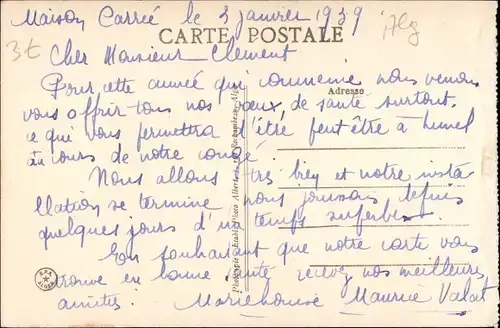 Maison Carrée le 3 janvier 1939
Alg
3t
CARTE POSTALE
Cher Monsieur Clement
Pour cette année qui commence nous venons
Adresse
vous offrir tous nos voeux de santé surtout,
ce qui vous permettra d'être peut être à Lunel
au cours de notre congé.
Nous allons très bien et notre insta
llation se termine nous jouissons depuis
quelques jours d'un temps superbe.
En souhaitant que notre carte vous
trouve en bonne santé recevez nos meilleures
amitiés. Marielouise Maurice Valat
Photo Albert